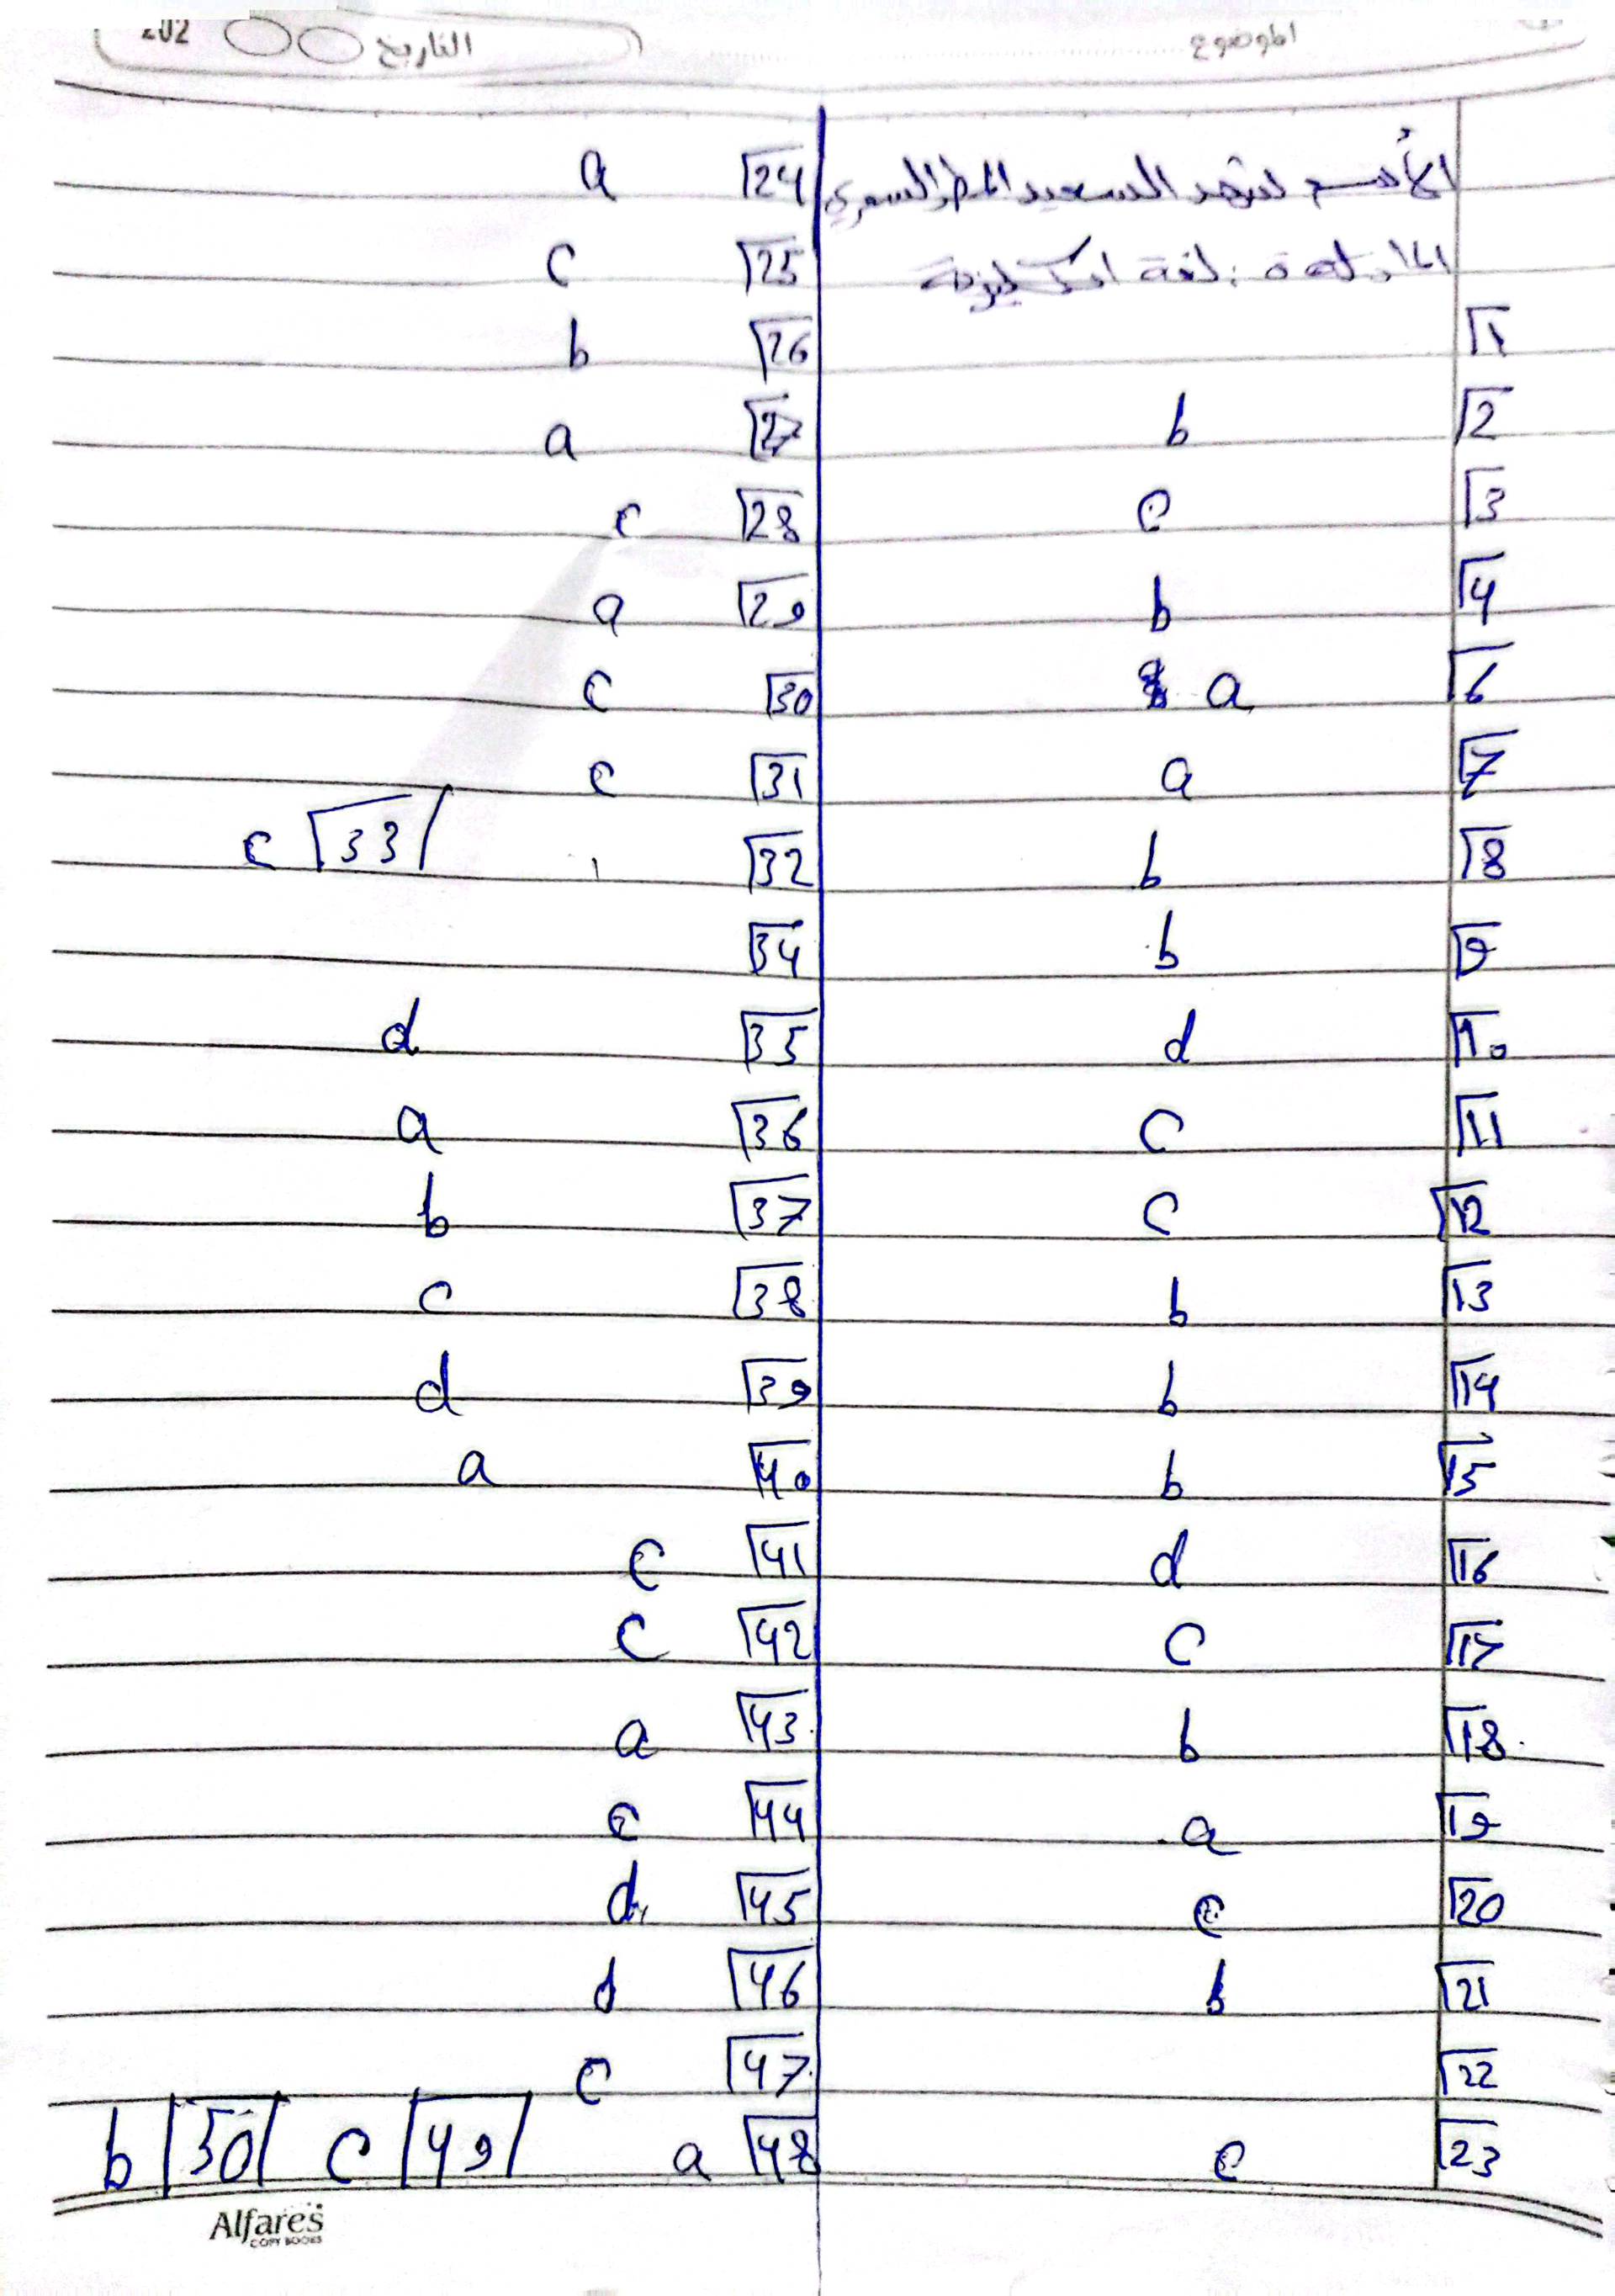 الموضوع
التاريخ 202
المادة : لغة انجليزية
1
2 b
3 c
4 b
6 a
7 a
8 b
9 b
10 d
11 c
12 c
13 b
14 b
15 b
16 d
17 c
18 b
19 a
20 c
21 b
22
23 c
24 a
25 c
26 b
27 a
28 c
29 a
30 c
31 c
32
33 c
34
35 d
36 a
37 b
38 c
39 d
40 a
41 c
42 c
43 a
44 c
45 d
46 d
47 c
48 a
49 c
50 b
Alfares
COPY BOOKS